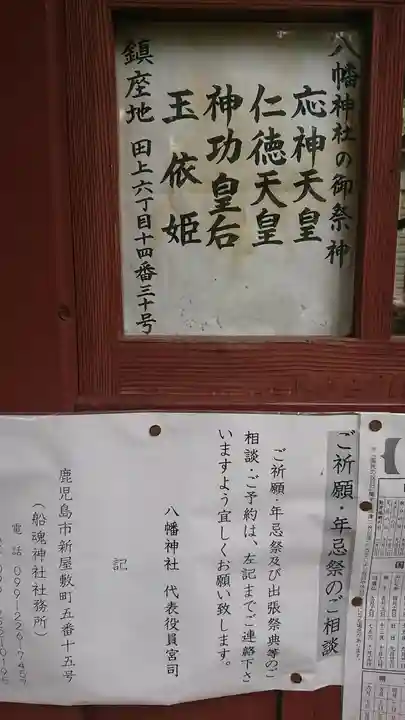 八幡神社の御祭神
応神天皇
仁徳天皇
神功皇后
玉依姫
鎮座地 田上六丁目十四番三十号
ご祈願・年忌祭のご相談
ご祈願・年忌祭及び出張祭典等のご
相談・ご予約は、左記までご連絡下さ
いますよう宜しくお願い致します。
八幡神社 代表役員宮司
記
鹿児島市新屋敷町五番十五号
(船魂神社社務所)
電話 099-226-7457